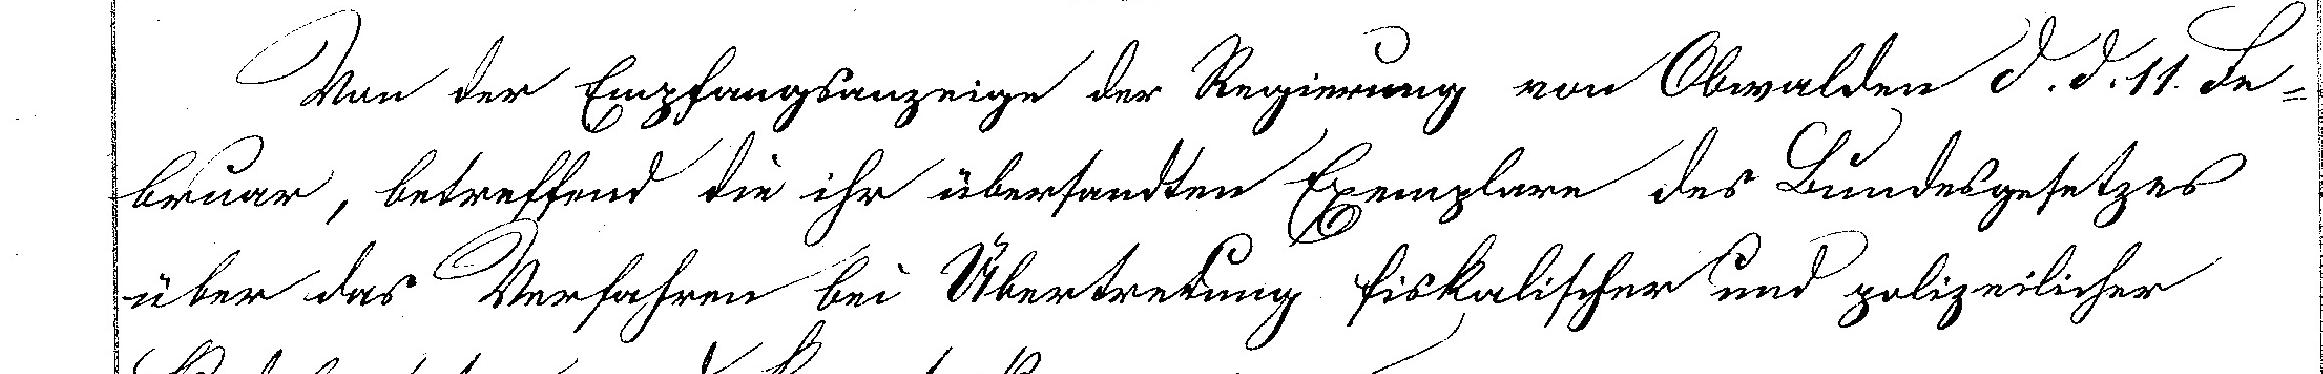 Von der Empfangsanzeige der Regierung von Obwalden d. d. 11. Fe-
bruar, betreffend die ihr übersandten Exemplare des Bundesgesetzes
über das Verfahren bei Übertretung fiskalischer und polizeilicher